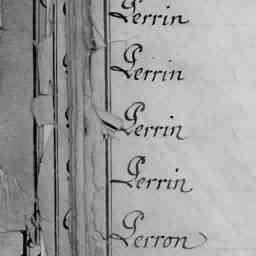 Perrin
Perrin
Perrin
Perrin
Perron